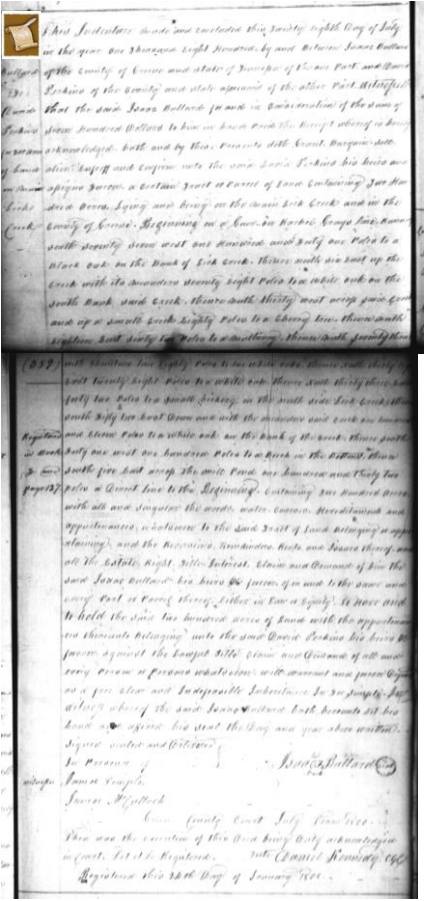 This Indenture made and concluded this Twenty Eighth Day of July
in the year one Thousand Eight Hundred by and Between Isaac Bullard
of the County of Greene and State of Tennessee of the one Part and David
Perkins of the County and State aforesaid of the other Part Witnesseth
that the said Isaac Bullard for and in Consideration of the Sum of
Seven Hundred Dollars to him in hand Paid the Receipt whereof is hereby
acknowledged hath and by these Presents doth Grant Bargain Sell
alien Enfeoff and Confirm unto the said David Perkins his heirs and
assigns forever a Certain Tract or Parcel of Land Containing Two Hun
dred Acres Lying and Being on the main Lick Creek and in the
County of Greene. Beginning on a
south Seventy Seven west one Hundred and Sixty one Poles to a
Black oak on the Bank of Lick Creek thence south six East up the
Creek with its meanders Seventy Eight Poles to a white oak on the
south Bank said Creek thence south thirty west across said Creek
and up a small Creek Eighty Poles to a Cherry tree thence south
Eighteen East sixty two Poles to a thence South Seventy three
Bullard
David
Perkins
of Land
Creek
(339)
Eighty Poles to a white oak thence south thirty
East Twenty Eight Poles to a white oak thence south thirty three East
forty two Poles to a small Hickory in the north side Lick Creek thence
south Fifty two East Down and with the meanders said Creek one hundred
and Eleven Poles to a White oak on the Bank of the Creek thence South
Sixty one west one hundred Poles to a in the Bottom thence
South five East across the mill Pond one hundred and Thirty two
Poles a Direct line to the Beginning. Containing Two Hundred Acres
with all and singular the woods water Courses Hereditaments and
appurtenances whatsoever to the said Tract of Land Belonging or appe
rtaining and the Reversion Remainders Rents and Issues thereof and
all the Estate Right Title Interest Claim and Demand of him the
said Isaac Bullard his heirs &c forever of in and to the same and
every Part or Parcel thereof Either in Law or Equity To Have and
to hold the said two hundred acres of Land with the appurtenan
ces thereunto Belonging unto the said David Perkins his heirs &c
forever against the Lawful Title Claim and Demand of all and
every Person or Persons whatsoever will warrant and forever Defend
as a free Clear and Indefeasible Inheritance In Fee Simple. In
Witness whereof the said Isaac Bullard hath hereunto set his
hand and affixed his seal the Day and year above written.
Signed sealed and Delivered
In Presence of
Isaac Bullard
Registered
in Book
page 137
witnesses
James Temple
James McCulloch
County Court July Term 1800.
Then was the execution of this Deed being Duly acknowledged
in Court. Let it be Registered. Daniel Kennedy
Registered this 24th Day of January